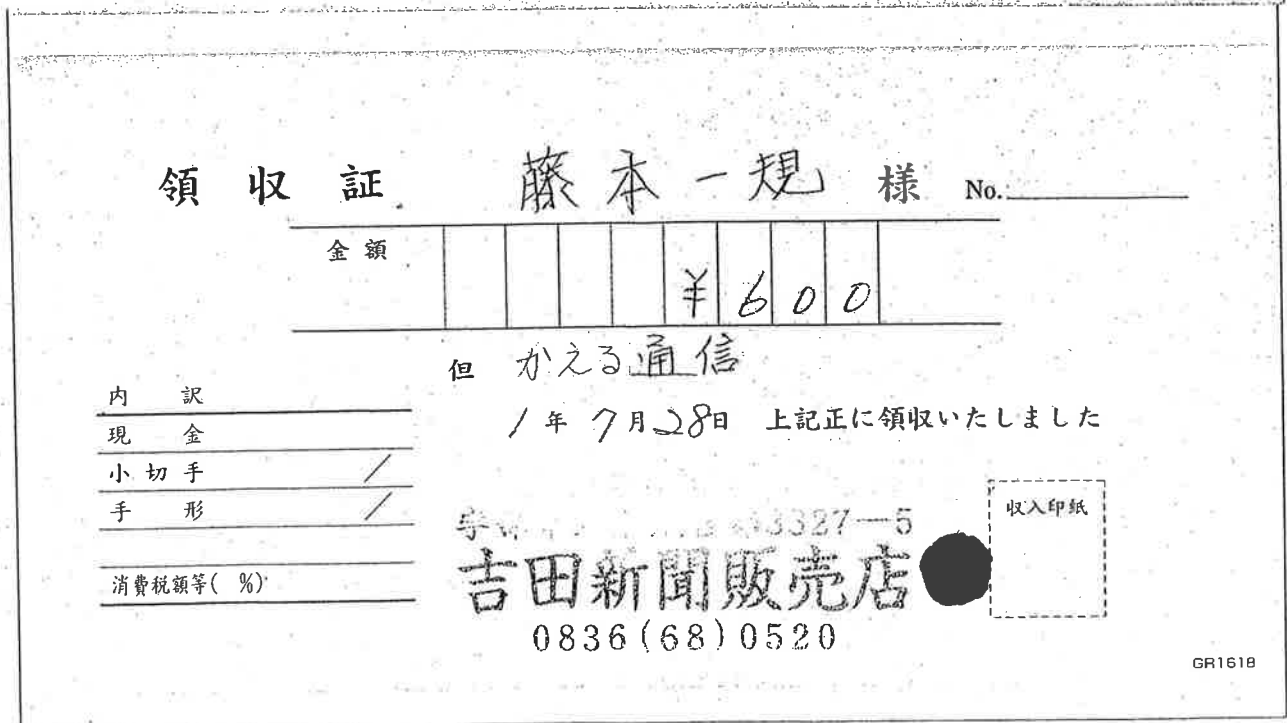 領収証 藤本一規 様 No.
金額 ¥600
但 かえる通信
1年7月28日 上記正に領収いたしました
内訳
現金
小切手 /
手形 /
消費税額等( %)
収入印紙
3327-5
吉田新聞販売店
0836(68)0520
GR1618